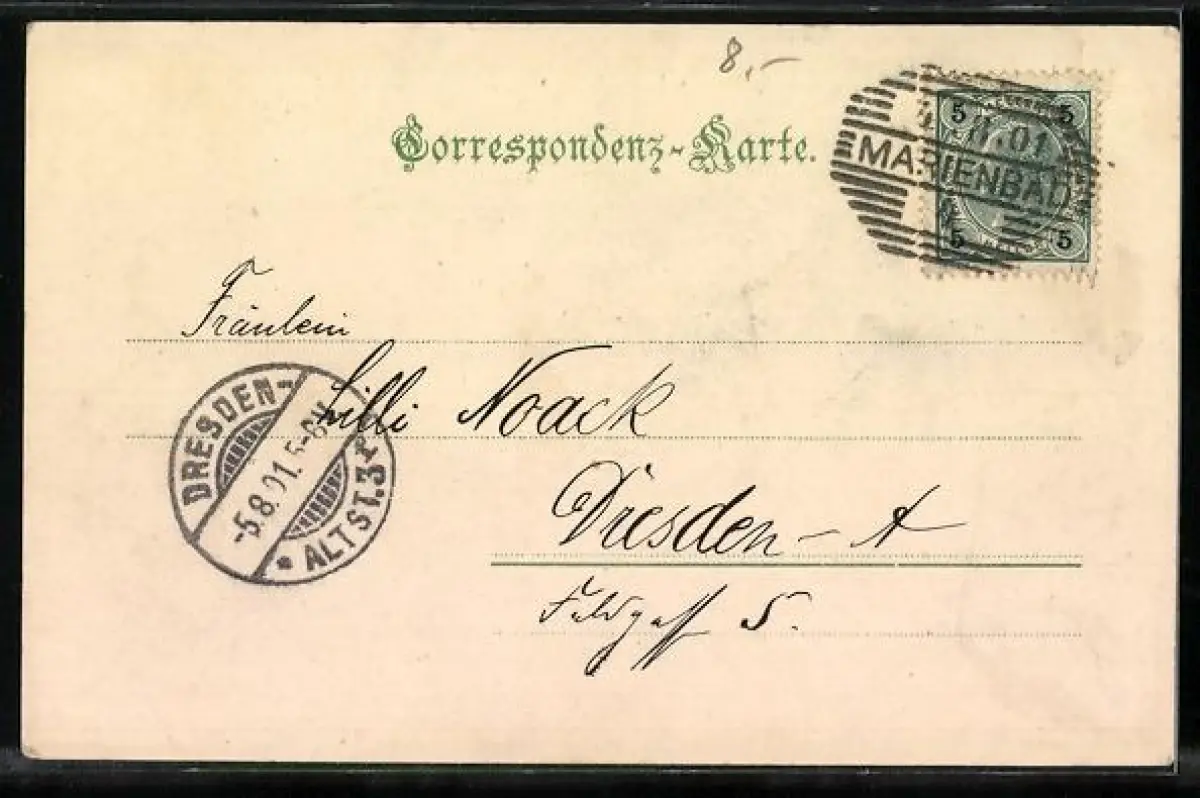 8.-
Correspondenz-Karte.
5 5
8.01
MARIENBAD
5 5
Fräulein
Lilli Noack
Dresden-A
Feldgasse 5.
DRESDEN-
-5.8.01. 5-6N.
* ALTST. 3